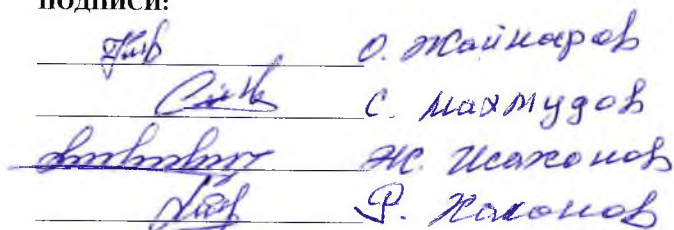 ПОДПИСИ:
О. Жайнаров
С. Махмудов
Ж. Исахонов
Р. Хахонов